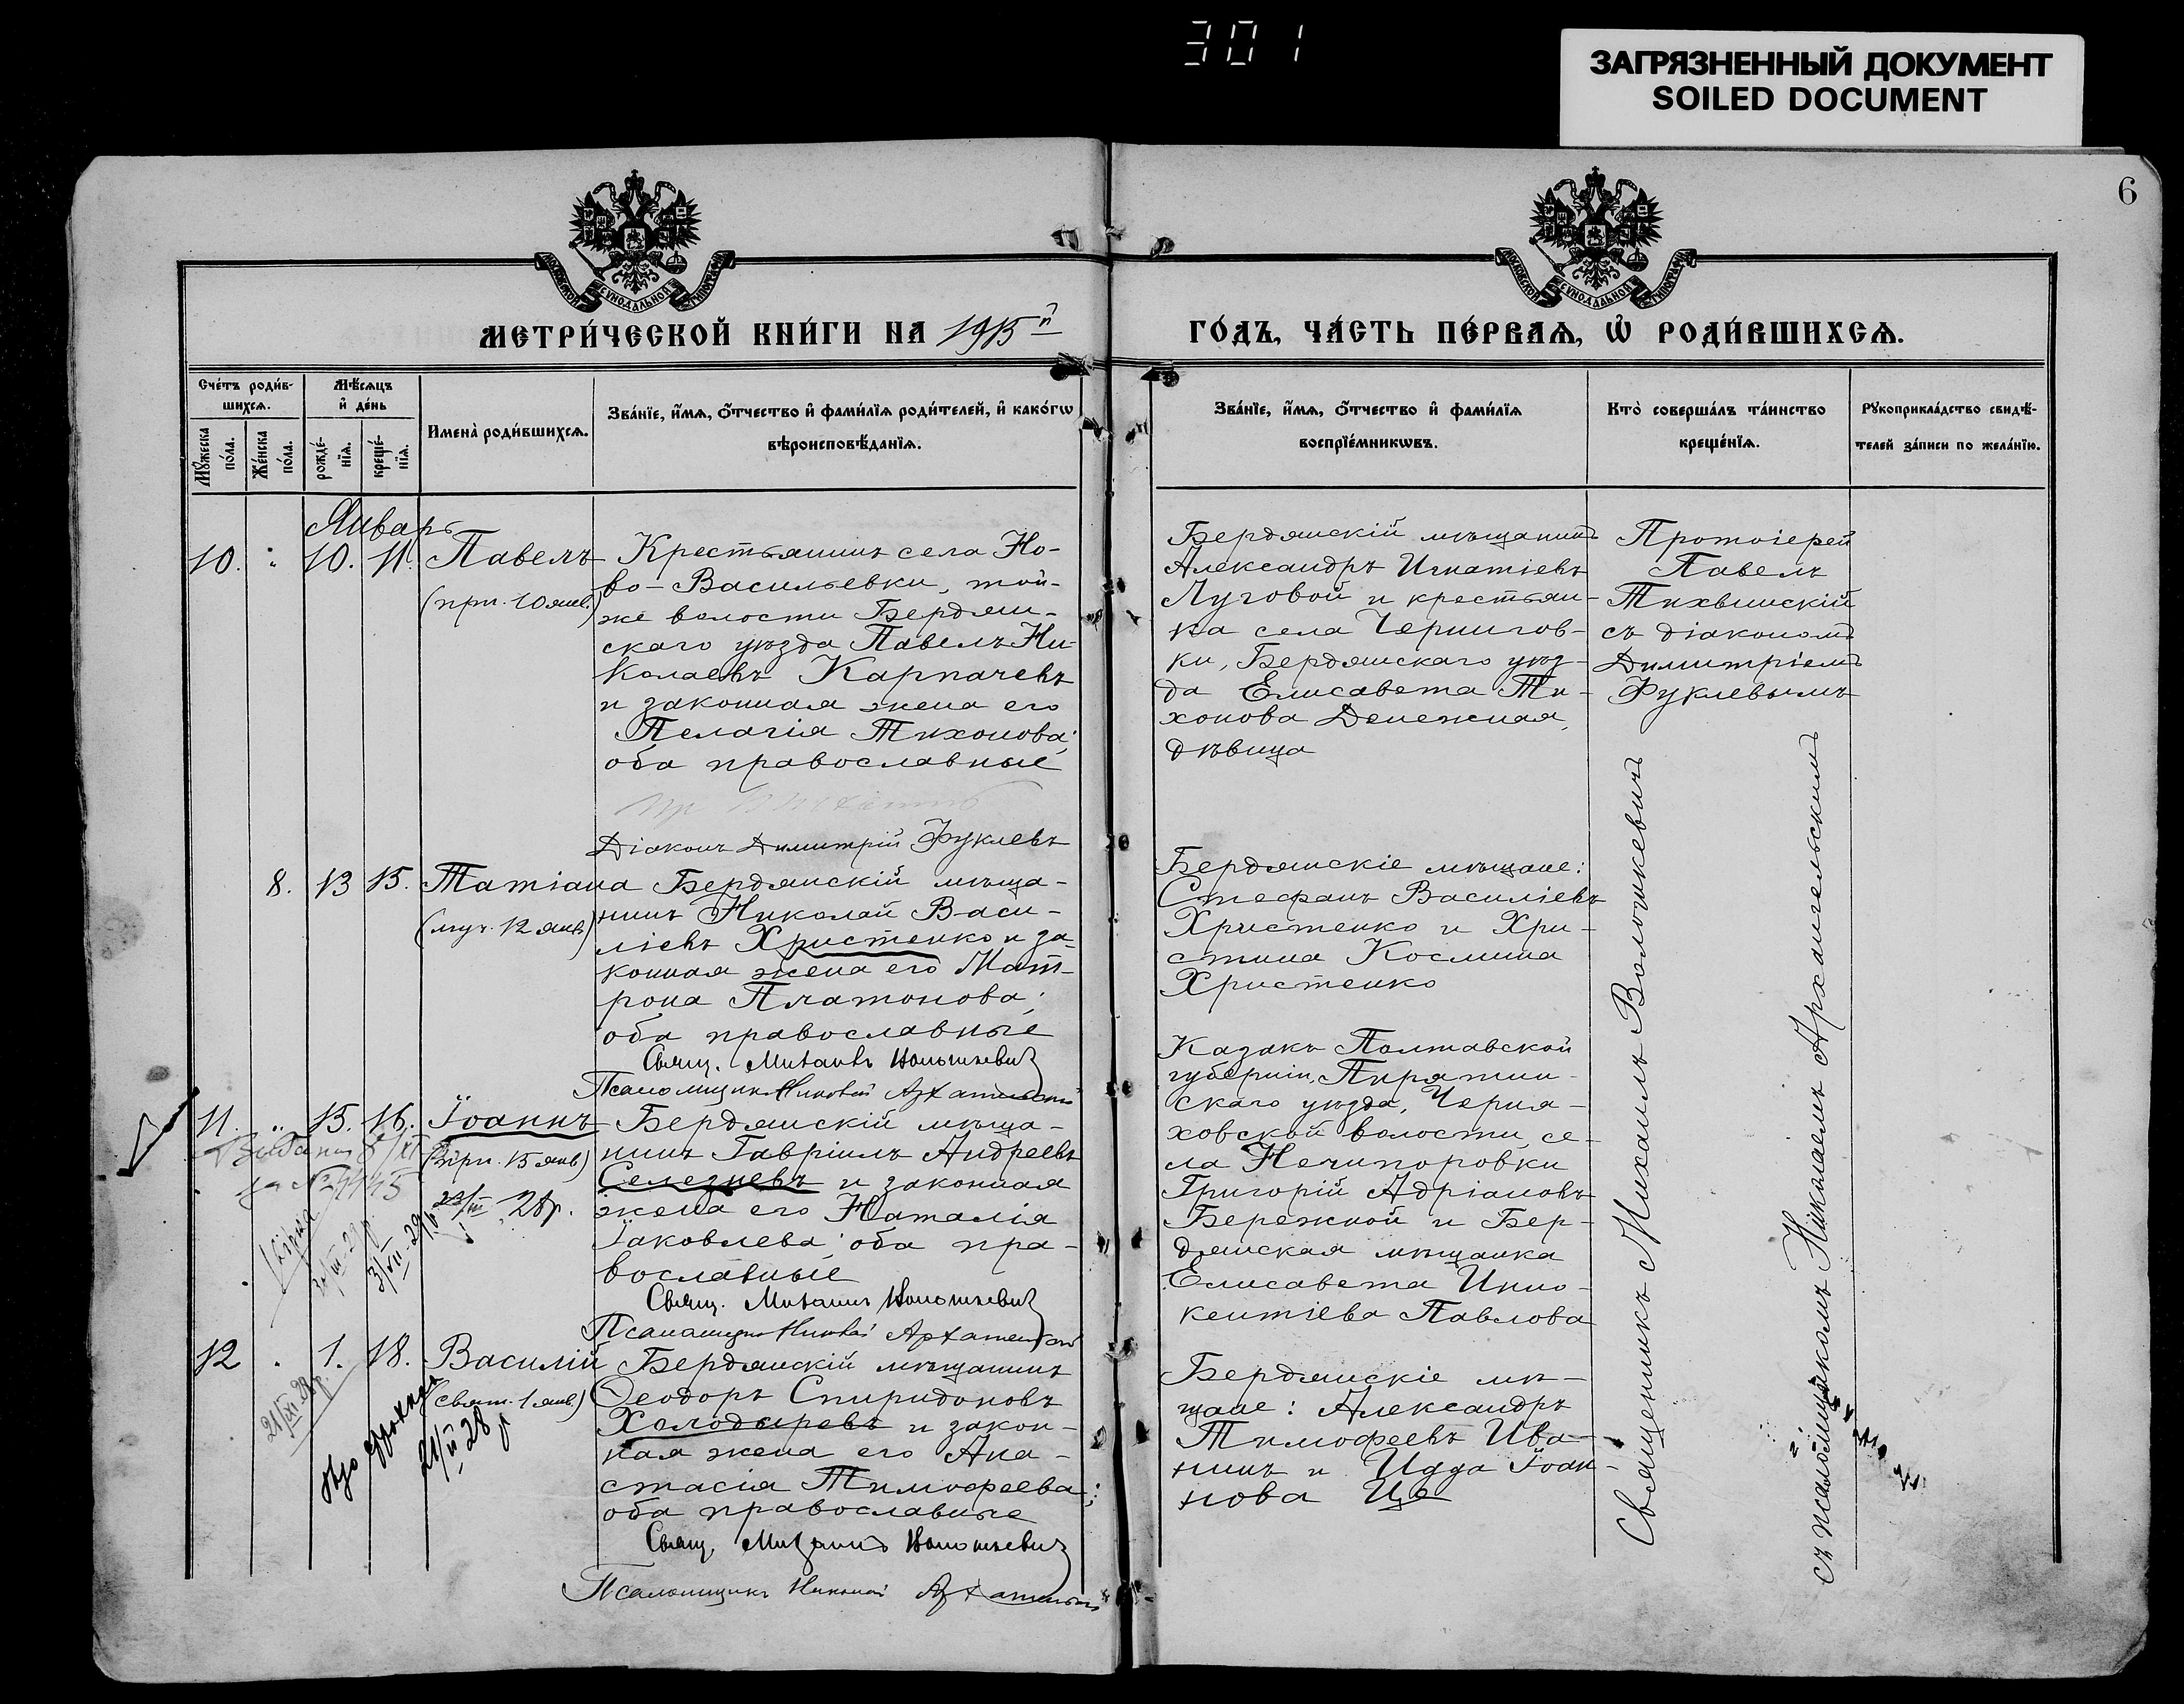 301
ЗАГРЯЗНЕННЫЙ ДОКУМЕНТ
SOILED DOCUMENT
6
МОСКОВСКОЙ СУНОДАЛЬНОЙ ТИПОГРАФІИ
МОСКОВСКОЙ СУНОДАЛЬНОЙ ТИПОГРАФІИ
МЕТРИ́ЧЕСКОЙ КНИ́ГИ НА 1915й
ГО́ДЪ, ЧА́СТЬ ПЕ́РВАѦ, Ѡ҆ РОДИ́ВШИХСѦ.
Сче́тъ роди́в-
шихсѧ.
Мѣ́сѧцъ
и҆ де́нь
Мꙋ́жеска
по́ла.
Же́нска
по́ла.
рожде́-
нїѧ.
креще́-
нїѧ.
Имена̀ роди́вшихсѧ.
Зва́нїе, и҆́мѧ, ѻ҆́тчество и҆ фами́лїѧ роди́телей, и҆ како́гѡ
вѣроисповѣ́данїѧ.
Зва́нїе, и҆́мѧ, ѻ҆́тчество и҆ фами́лїѧ
воспрїе́мникѡвъ.
Кто̀ соверша́лъ та́инство
креще́нїѧ.
Рꙋкоприкла́дство свидѣ́-
телей за́писи по жела́нїю.
Январь
10. 10. 11. Павелъ
(прп. 10 янв.)
Крестьянинъ села Но-
во-Васильевки, той-
же волости Бердян-
скаго уѣзда Павелъ Ни-
колаевъ Карпачевъ
и законная жена его
Пелагія Тихонова;
оба православные
Діаконъ Димитрій Фуклевъ
Бердянскій мѣщанинъ
Александръ Игнатіевъ
Луговой и крестьян-
ка села Чернигов-
ки, Бердянскаго уѣз-
да Елисавета Ти-
хонова Денежная,
дѣвица
Протоіерей
Павелъ
Тихвинскій
съ діакономъ
Димитріемъ
Фуклевымъ
8. 13 15. Татіана
(муч. 12 янв.)
Бердянскій мѣща-
нинъ Николай Васи-
ліевъ Христенко и за-
конная жена его Мат-
рона Платонова;
оба православные
Свящ. Михаилъ Волошкевичъ
Псаломщикъ Николай Архангельскій
Бердянскіе мѣщане:
Стефанъ Василіевъ
Христенко и Хри-
стина Космина
Христенко
11. 15. 16. Іоаннъ
(прп. 15 янв)
23/III 28г.
Бердянскій мѣща-
нинъ Гавріилъ Андреевъ
Селезневъ и законная
жена его Наталія
Іаковлева; оба пра-
вославные
Свящ. Михаилъ Волошкевичъ
Псаломщикъ Николай Архангельскій
Казакъ Полтавской
губерніи, Пирятин-
скаго уѣзда, Черня-
ховской волости, се-
ла Нечипоровки
Григорій Адріановъ
Бережной и Бер-
дянская мѣщанка
Елисавета Инно-
кентіева Павлова
12 1. 18. Василій
(свят. 1 янв.)
21/II 28 г
Бердянскій мѣщанинъ
Ѳеодоръ Спиридоновъ
Холодыревъ и закон-
ная жена его Ана-
стасія Тимофеева;
оба православные
Свящ. Михаилъ Волошкевичъ
Псаломщикъ Николай Архангельскій
Бердянскіе мѣ-
щане: Александръ
Тимофеевъ Ива-
нинъ и Идда Іоан-
нова Це
Священникъ Михаилъ Волошкевичъ
съ псаломщикомъ Николаемъ Архангельскимъ